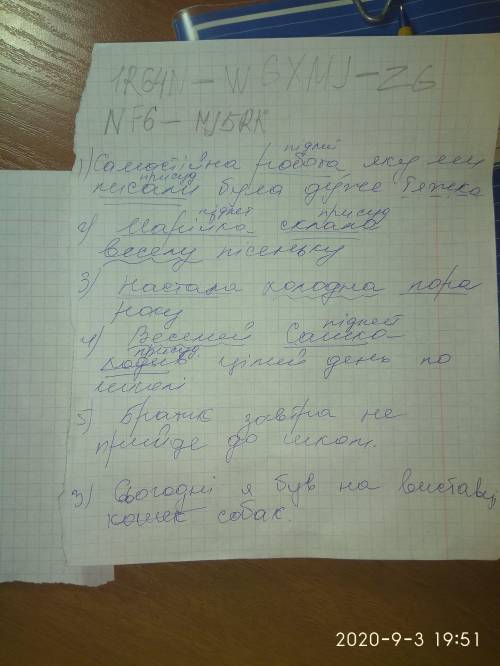 1R64N-WGXMJ-Z6
NF6-MJ5RK
підмет
1) Самостійна робота, яку ми
присуд
писали була дуже тяжка
підмет присуд
2) Марійка склала
веселу пісеньку
3) Настала холодна пора
року
підмет
4) Веселий Сашко
присуд
ходив цілий день по
школі
5) Братик завтра не
прийде до школи.
3) Сьогодні я був на виставці
кошек собак.
2020-9-3 19:51